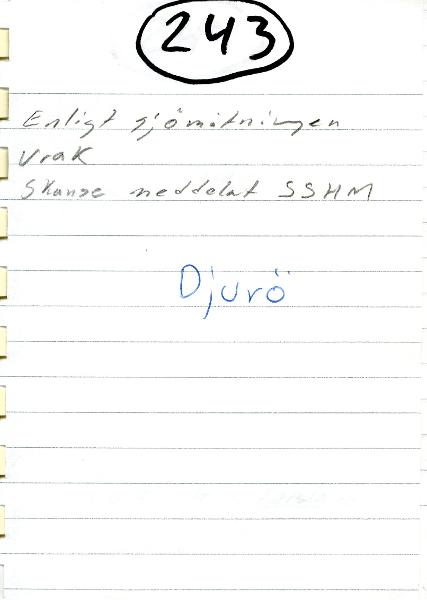 243
Enligt sjömätningen
vrak
Skanse meddelat SSHM
Djurö